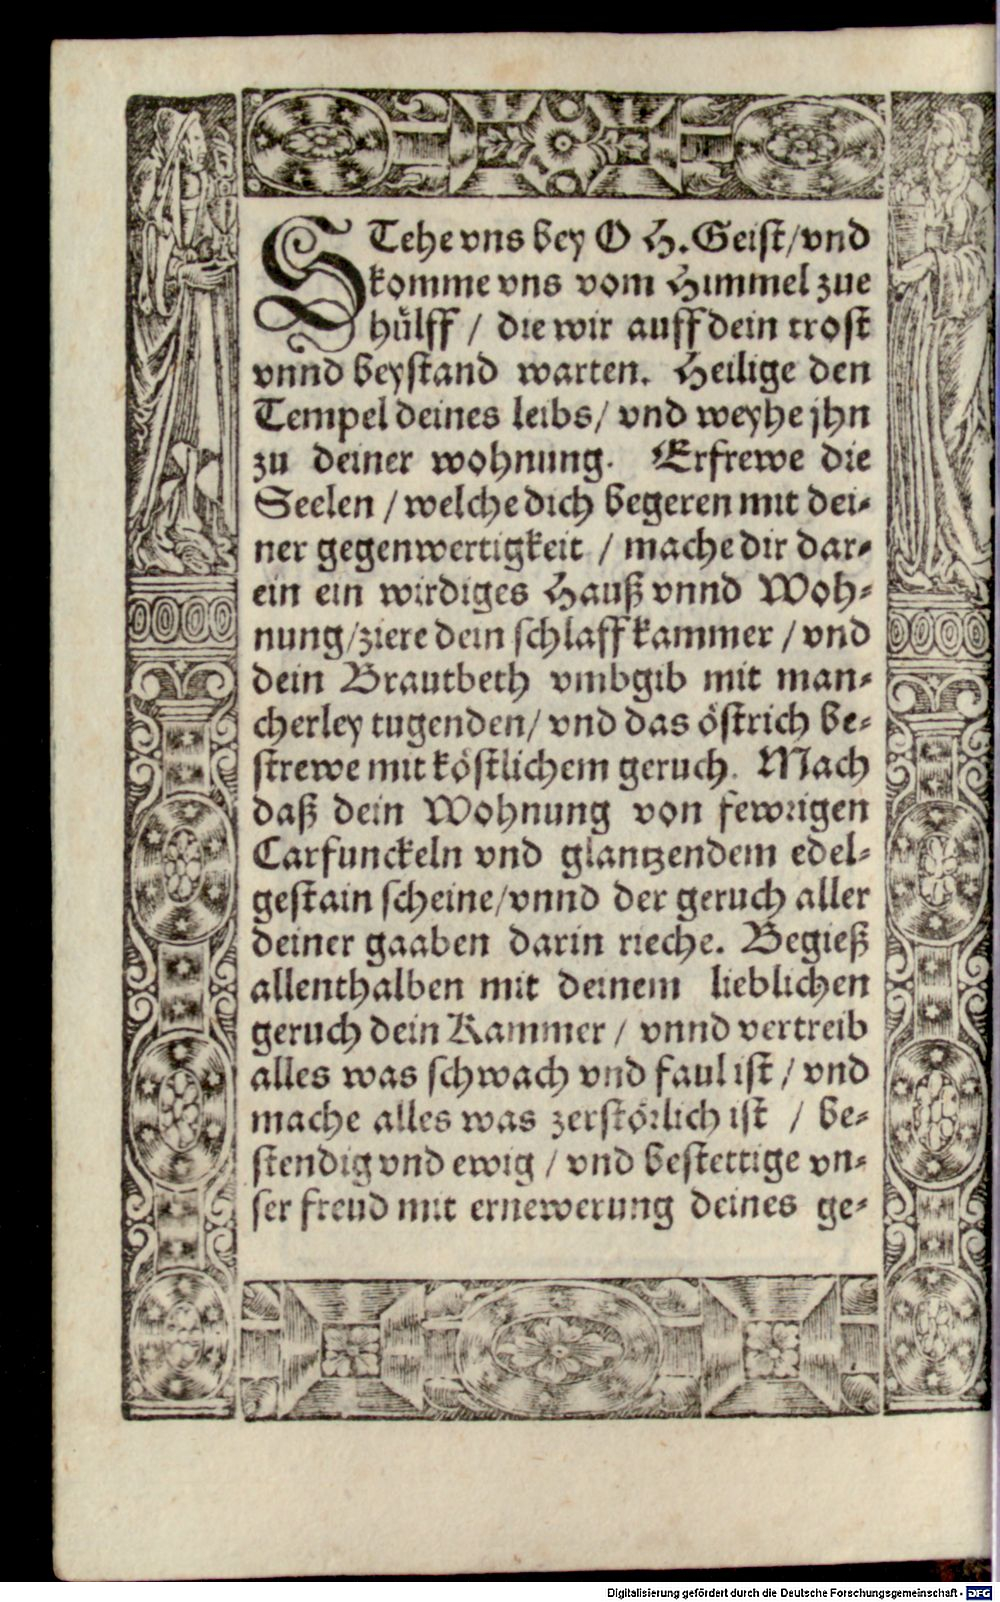 STehe vns bey O H. Geist/vnd
komme vns vom Himmel zue
hülff / die wir auff dein trost
vnnd beystand warten. Heilige den
Tempel deines leibs/ vnd weyhe jhn
zu deiner wohnung. Erfrewe die
Seelen / welche dich begeren mit dei-
ner gegenwertigkeit / mache dir dar-
ein ein wirdiges Hauß vnnd Woh-
nung/ziere dein schlaffkammer / vnd
dein Brautbeth vmbgib mit man-
cherley tugenden/ vnd das östrich be-
strewe mit köstlichem geruch. Mach
daß dein Wohnung von fewrigen
Carfunckeln vnd glantzendem edel-
gestain scheine/vnnd der geruch aller
deiner gaaben darin rieche. Begieß
allenthalben mit deinem lieblichen
geruch dein Kammer / vnnd vertreib
alles was schwach vnd faul ist / vnd
mache alles was zerstörlich ist / be-
stendig vnd ewig / vnd bestettige vn-
ser freud mit ernewerung deines ge-
Digitalisierung gefördert durch die Deutsche Forschungsgemeinschaft - DFG